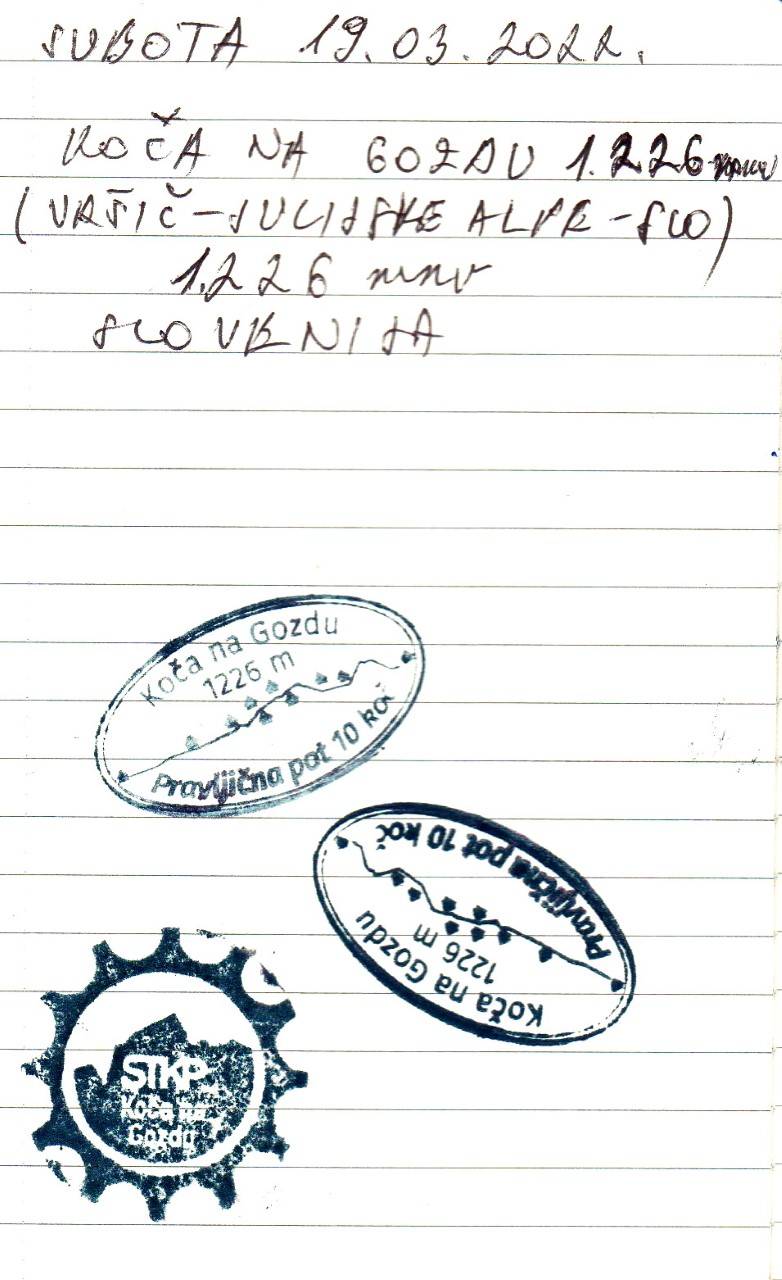 SUBOTA 19.03.2022.
KOČA NA GOZDU 1.226 mnv
(VRŠIČ-JULIJSKE ALPE-SLO)
1.226 mnv
SLOVENIJA
Koča na Gozdu
1226 m
Pravljična pot 10 koč
Pravljična pot 10 koč
1226 m
Koča na Gozdu
STKP
Koča na
Gozdu